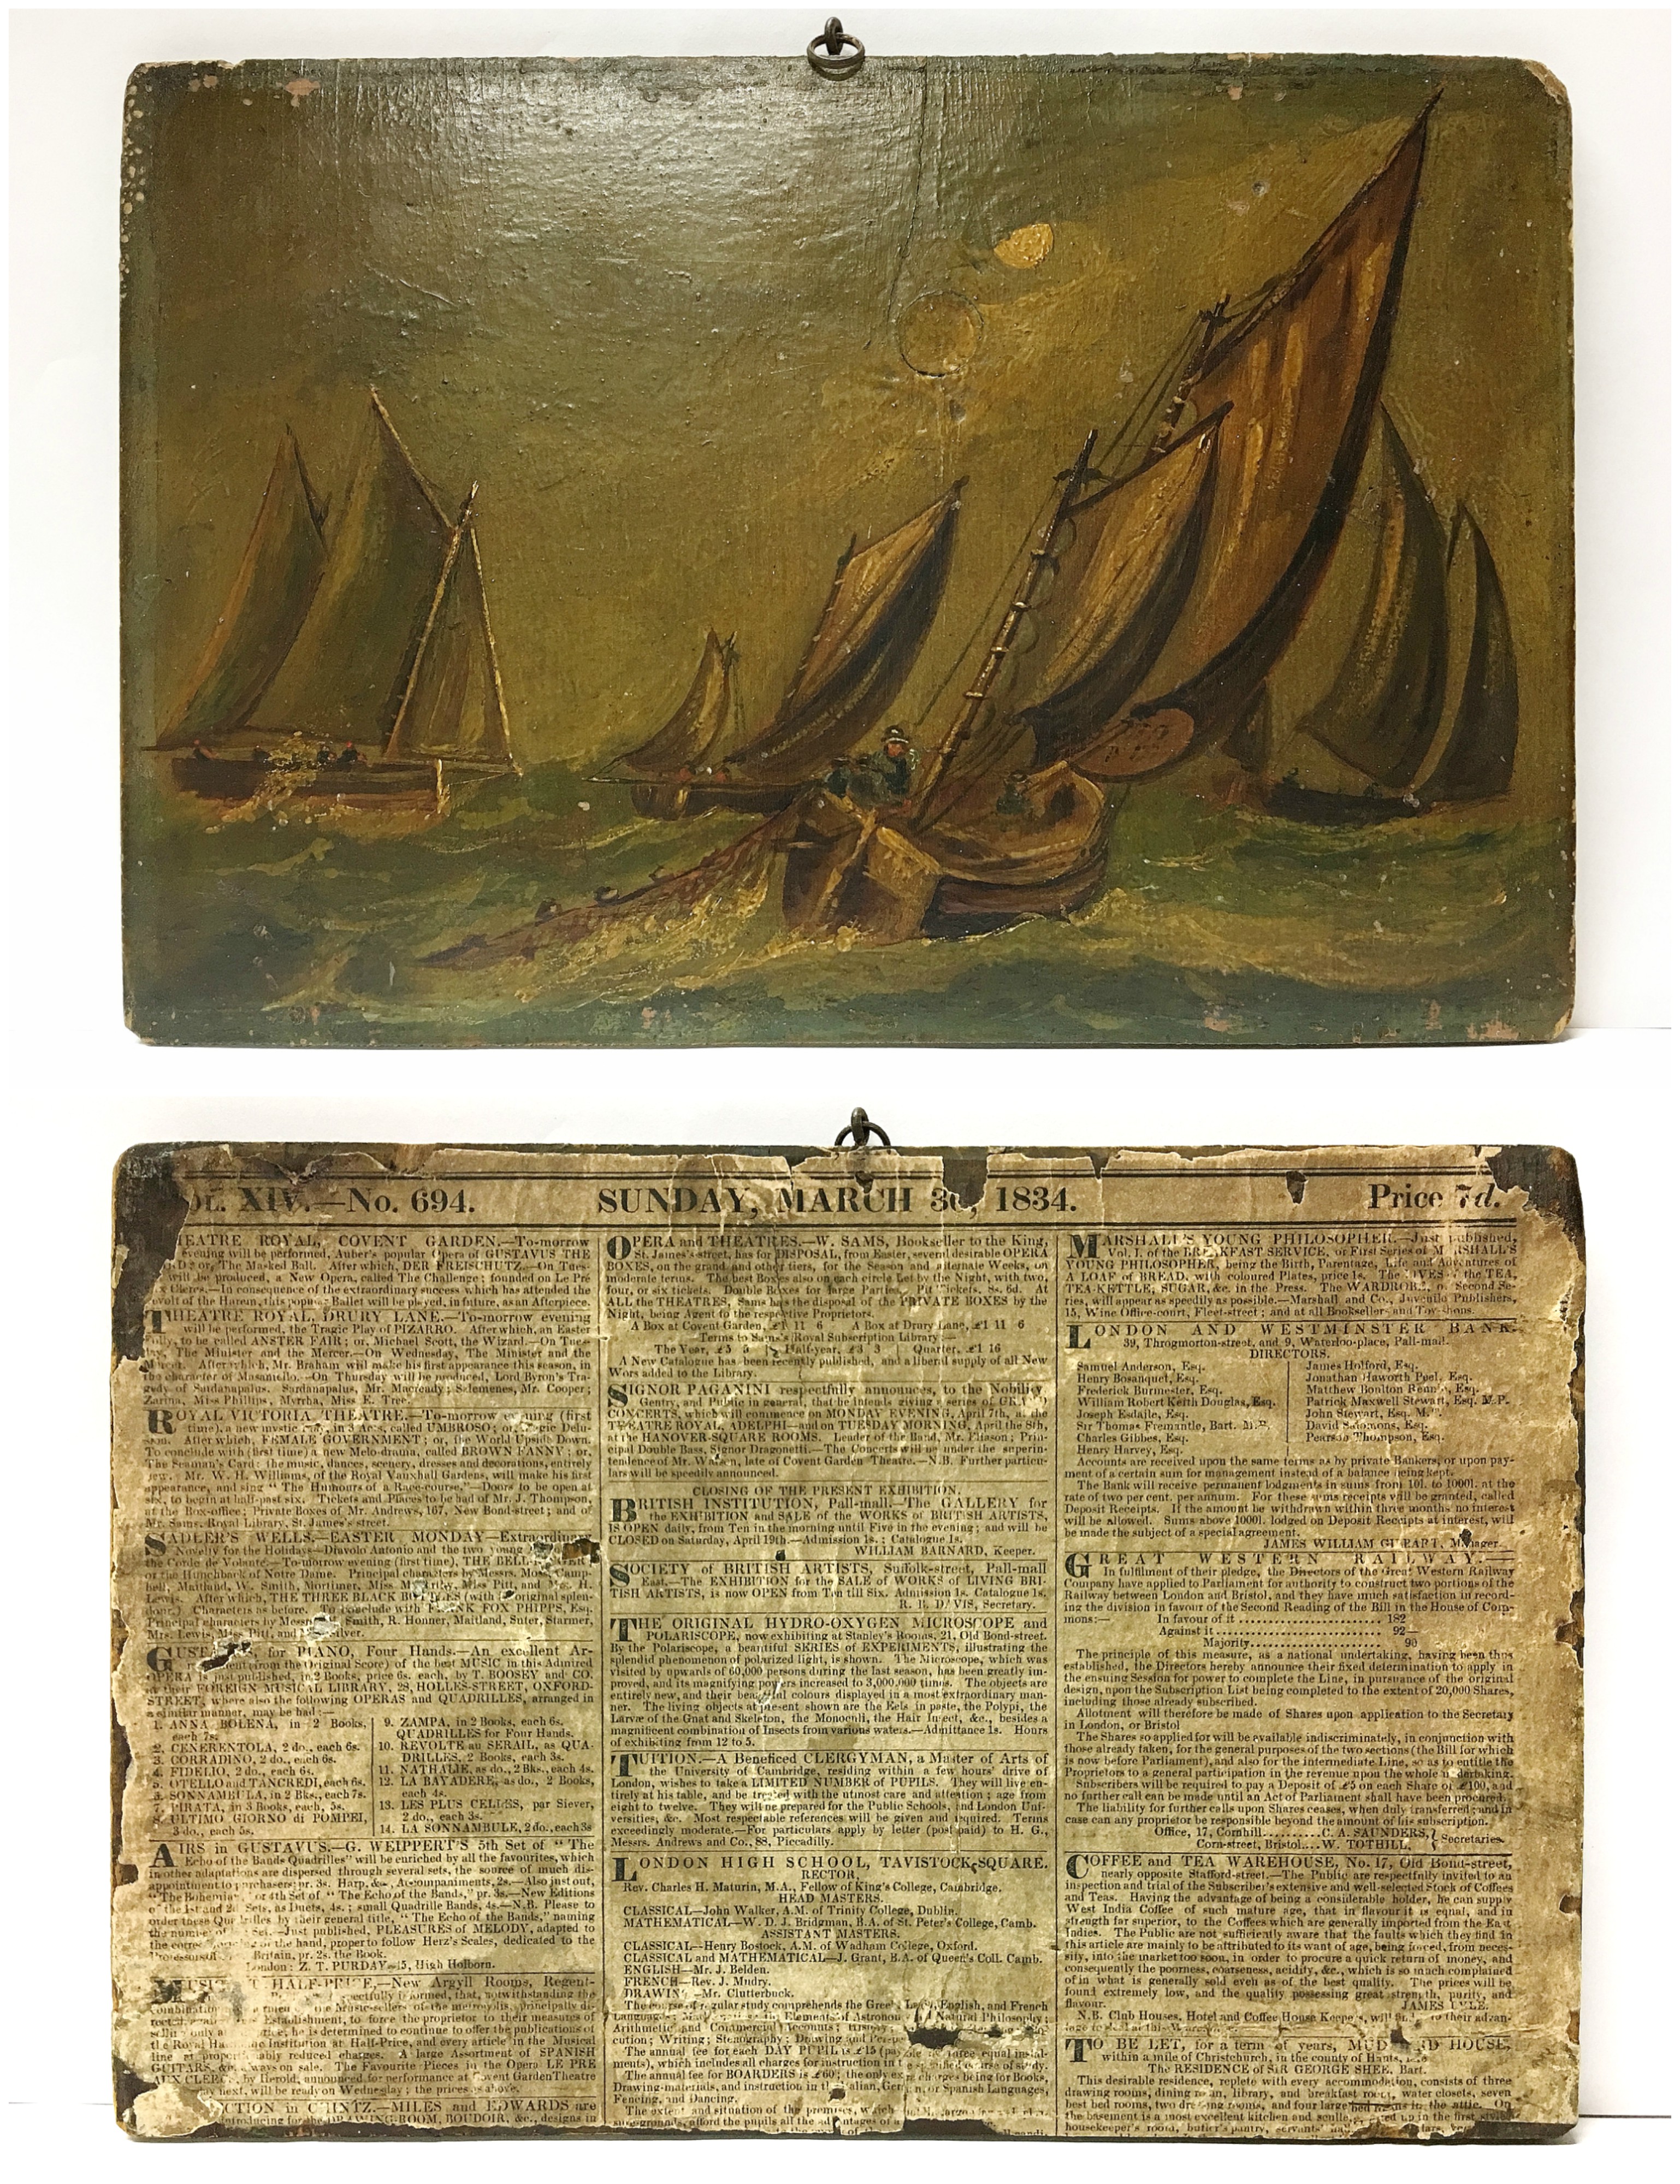 XIV.—No. 694.
SUNDAY, MARCH 30, 1834.
Price 7d.
THEATRE ROYAL, COVENT GARDEN.—To-morrow
evening will be performed, Auber's popular Opera of GUSTAVUS THE
or, The Masked Ball. After which, DER FREISCHUTZ.—On Tues-
will be produced, a New Opera, called The Challenge; founded on Le Pré
Clercs.—In consequence of the extraordinary success which has attended the
Revolt of the Harem, this popular Ballet will be played, in future, as an Afterpiece.
THEATRE ROYAL, DRURY LANE.—To-morrow evening
will be performed, the Tragic Play of PIZARRO. After which, an Easter
Folly, to be called ANSTER FAIR; or, Michael Scott, the Wizard.—On Tues-
day, The Minister and the Mercer.—On Wednesday, The Minister and the
Mercer. After which, Mr. Braham will make his first appearance this season, in
the character of Masaniello.—On Thursday will be produced, Lord Byron's Tra-
gedy of Sardanapalus. Sardanapalus, Mr. Macready; Salemenes, Mr. Cooper;
Zarina, Miss Phillips, Myrrha, Miss E. Tree.
ROYAL VICTORIA THEATRE.—To-morrow evening (first
time), a new mystic play, in 3 Acts, called UMBROSO; or, Magic Delu-
sion. After which, FEMALE GOVERNMENT; or, the World Upside Down.
To conclude with (first time) a new Melo-drama, called BROWN FANNY; or,
The Seaman's Card: the music, dances, scenery, dresses and decorations, entirely
new. Mr. W. H. Williams, of the Royal Vauxhall Gardens, will make his first
appearance, and sing "The Humours of a Race-course."—Doors to be open at
six, to begin at half-past six. Tickets and Places to be had of Mr. J. Thompson,
at the Box-office; Private Boxes of Mr. Andrews, 167, New Bond-street; and of
Mr. Sams, Royal Library, St. James's street.
SADLER'S WELLS.—EASTER MONDAY—Extraordinary
Novelty for the Holidays—Diavolo Antonio and the two young
the Corde de Volante.—To-morrow evening (first time), THE BELL
or the Hunchback of Notre Dame. Principal characters by Messrs. Camp-
bell, Maitland, W. Smith, Mortimer, Miss Miss Pitt, and H.
Lewis. After which, THE THREE BLACK BOTTLES (with original splen-
dour.) Characters as before. To conclude with FRANK FOX PHIPPS, Esq.
Principal characters by Messrs. Smith, R. Honner, Maitland, Suter, Starmer,
Mrs. Lewis, Miss Pitt, and
for PIANO, Four Hands.—An excellent Ar-
rangement (from the Original Score) of the best MUSIC in this Admired
OPERA is just published, in 2 Books, price 6s. each, by T. BOOSEY and CO.
at their FOREIGN MUSICAL LIBRARY, 28, HOLLES-STREET, OXFORD-
STREET, where also the following OPERAS and QUADRILLES, arranged in
a similar manner, may be had:—
1. ANNA BOLENA, in 2 Books, each 7s.
2. CENERENTOLA, 2 do., each 6s.
3. CORRADINO, 2 do., each 6s.
4. FIDELIO, 2 do., each 6s.
5. OTELLO and TANCREDI, each 6s.
6. SONNAMBULA, in 2 Bks., each 7s.
7. PIRATA, in 3 Books, each, 5s.
8. ULTIMO GIORNO di POMPEI,
3 do., each 5s.
9. ZAMPA, in 2 Books, each 6s.
QUADRILLES for Four Hands.
10. REVOLTE au SERAIL, as QUA-
DRILLES, 2 Books, each 3s.
11. NATHALIE, as do., 2 Bks., each 4s.
12. LA BAYADERE, as do., 2 Books,
each 4s.
13. LES PLUS CELLES, par Siever,
2 do., each 3s.
14. LA SONNAMBULE, 2 do., each 3s
AIRS in GUSTAVUS.—G. WEIPPERT'S 5th Set of "The
Echo of the Bands Quadrilles" will be enriched by all the favourites, which
in other adaptations are dispersed through several sets, the source of much dis-
appointment to purchasers: pr. 3s. Harp, &c., Accompaniments, 2s.—Also just out,
"The Bohemian," or 4th Set of "The Echo of the Bands," pr. 3s.—New Editions
of the 1st and 2d Sets, as Duets, 4s.; small Quadrille Bands, 4s.—N.B. Please to
order these Quadrilles by their general title, "The Echo of the Bands," naming
the number of Set.—Just published, PLEASURES of MELODY, adapted to
the hand, proper to follow Herz's Scales, dedicated to the
Britain, pr. 2s. the Book.
London: Z. T. PURDAY, 45, High Holborn.
MUSIC AT HALF-PRICE,—New Argyll Rooms, Regent-
respectfully informed, that, notwithstanding the
music-sellers of the metropolis, principally di-
Establishment, to force the proprietor to their measures of
he is determined to continue to offer the publications of
the Royal Institution at Half-Price, and every article in the Musical
line at proportionably reduced charges. A large Assortment of SPANISH
GUITARS, &c. always on sale. The Favourite Pieces in the Opera LE PRE
AUX CLERCS, by Herold, announced for performance at Covent Garden Theatre
next, will be ready on Wednesday; the prices as above.
in CHINTZ.—MILES and EDWARDS are
introducing for the DRAWING-ROOM, BOUDOIR, &c., designs in
OPERA and THEATRES.—W. SAMS, Bookseller to the King,
St. James's-street, has for DISPOSAL, from Easter, several desirable OPERA
BOXES, on the grand and other tiers, for the Season and alternate Weeks, on
moderate terms. The best Boxes also on each circle Let by the Night, with two,
four, or six tickets. Double Boxes for large Parties. Pit Tickets, 8s. 6d. At
ALL the THEATRES, Sams has the disposal of the PRIVATE BOXES by the
Night, being Agent to the respective Proprietors.
A Box at Covent Garden, £1 11 6 A Box at Drury Lane, £1 11 6
Terms to Sams's Royal Subscription Library:—
The Year, £5 5 | Half-year, £3 3 | Quarter, £1 16
A New Catalogue has been recently published, and a liberal supply of all New
Works added to the Library.
SIGNOR PAGANINI respectfully announces, to the Nobility,
Gentry, and Public in general, that he intends giving a series of GRAND
CONCERTS, which will commence on MONDAY EVENING, April 7th, at the
THEATRE ROYAL, ADELPHI—and on TUESDAY MORNING, April the 8th,
at the HANOVER-SQUARE ROOMS. Leader of the Band, Mr. Eliason; Prin-
cipal Double Bass, Signor Dragonetti.—The Concerts will be under the superin-
tendence of Mr. Watson, late of Covent Garden Theatre.—N.B. Further particu-
lars will be speedily announced.
CLOSING OF THE PRESENT EXHIBITION.
BRITISH INSTITUTION, Pall-mall.—The GALLERY for
the EXHIBITION and SALE of the WORKS of BRITISH ARTISTS,
IS OPEN daily, from Ten in the morning until Five in the evening; and will be
CLOSED on Saturday, April 19th.—Admission 1s.; Catalogue 1s.
WILLIAM BARNARD, Keeper.
SOCIETY of BRITISH ARTISTS, Suffolk-street, Pall-mall
East.—The EXHIBITION for the SALE of WORKS of LIVING BRI-
TISH ARTISTS, is now OPEN from Ten till Six. Admission 1s. Catalogue 1s.
R. B. DAVIS, Secretary.
THE ORIGINAL HYDRO-OXYGEN MICROSCOPE and
POLARISCOPE, now exhibiting at Stanley's Rooms, 21, Old Bond-street.
By the Polariscope, a beautiful SERIES of EXPERIMENTS, illustrating the
splendid phenomenon of polarized light, is shown. The Microscope, which was
visited by upwards of 60,000 persons during the last season, has been greatly im-
proved, and its magnifying powers increased to 3,000,000 times. The objects are
entirely new, and their beautiful colours displayed in a most extraordinary man-
ner. The living objects at present shown are the Eels in paste, the Polypi, the
Larvæ of the Gnat and Skeleton, the Monoculi, the Hair Insect, &c., besides a
magnificent combination of Insects from various waters.—Admittance 1s. Hours
of exhibiting from 12 to 5.
TUITION.—A Beneficed CLERGYMAN, a Master of Arts of
the University of Cambridge, residing within a few hours' drive of
London, wishes to take a LIMITED NUMBER of PUPILS. They will live en-
tirely at his table, and be treated with the utmost care and attention; age from
eight to twelve. They will be prepared for the Public Schools, and London Uni-
versities, &c. Most respectable references will be given and required. Terms
exceedingly moderate.—For particulars apply by letter (post paid) to H. G.,
Messrs. Andrews and Co., 88, Piccadilly.
LONDON HIGH SCHOOL, TAVISTOCK-SQUARE.
RECTOR,
Rev. Charles H. Maturin, M.A., Fellow of King's College, Cambridge.
HEAD MASTERS.
CLASSICAL—John Walker, A.M. of Trinity College, Dublin.
MATHEMATICAL—W. D. J. Bridgman, B.A. of St. Peter's College, Camb.
ASSISTANT MASTERS.
CLASSICAL—Henry Bostock, A.M. of Wadham College, Oxford.
CLASSICAL and MATHEMATICAL—J. Grant, B.A. of Queen's Coll. Camb.
ENGLISH—Mr. J. Belden.
FRENCH—Rev. J. Mudry.
DRAWING—Mr. Clutterbuck.
The course of regular study comprehends the Greek, Latin, English, and French
Languages; Mathematics; the Elements of Astronomy, Natural Philosophy;
Arithmetic and Commercial Accounts; History, Elo-
cution; Writing; Stenography; Drawing and Perspective.
The annual fee for each DAY PUPIL is £15 (payable in three equal instal-
ments), which includes all charges for instruction in the specified course of study.
The annual fee for BOARDERS is £60; the only extra charges being for Books,
Drawing-materials, and instruction in the Italian, German, or Spanish Languages,
Fencing, and Dancing.
The extent and situation of the premises, which
afford the pupils all the advantages of a
MARSHALL'S YOUNG PHILOSOPHER.—Just published,
Vol. I. of the BREAKFAST SERVICE, or First Series of MARSHALL'S
YOUNG PHILOSOPHER, being the Birth, Parentage, Life and Adventures of
A LOAF of BREAD, with coloured Plates, price 1s. The LIVES of the TEA,
TEA-KETTLE, SUGAR, &c. in the Press. The WARDROBE, or Second Se-
ries, will appear as speedily as possible.—Marshall and Co., Juvenile Publishers,
15, Wine Office-court, Fleet-street; and at all Booksellers and Toy-shops.
LONDON AND WESTMINSTER BANK
39, Throgmorton-street, and 9, Waterloo-place, Pall-mall.
DIRECTORS.
Samuel Anderson, Esq.
Henry Bosanquet, Esq.
Frederick Burmester, Esq.
William Robert Keith Douglas, Esq.
Joseph Esdaile, Esq.
Sir Thomas Fremantle, Bart. M.P.
Charles Gibbes, Esq.
Henry Harvey, Esq.
James Holford, Esq.
Jonathan Haworth Peel, Esq.
Matthew Boulton Rennie, Esq.
Patrick Maxwell Stewart, Esq. M.P.
John Stewart, Esq. M.P.
David Salomons, Esq.
Pearson Thompson, Esq.
Accounts are received upon the same terms as by private Bankers, or upon pay-
ment of a certain sum for management instead of a balance being kept.
The Bank will receive permanent lodgments in sums from 10l. to 1000l. at the
rate of two per cent. per annum. For these sums receipts will be granted, called
Deposit Receipts. If the amount be withdrawn within three months no interest
will be allowed. Sums above 1000l. lodged on Deposit Receipts at interest, will
be made the subject of a special agreement.
JAMES WILLIAM GILBART, Manager.
GREAT WESTERN RAILWAY.—
In fulfilment of their pledge, the Directors of the Great Western Railway
Company have applied to Parliament for authority to construct two portions of the
Railway between London and Bristol, and they have much satisfaction in record-
ing the division in favour of the Second Reading of the Bill in the House of Com-
mons:— In favour of it .............. 182
Against it .............. 92—
Majority .............. 90
The principle of this measure, as a national undertaking, having been thus
established, the Directors hereby announce their fixed determination to apply in
the ensuing Session for power to complete the Line, in pursuance of the original
design, upon the Subscription List being completed to the extent of 20,000 Shares,
including those already subscribed.
Allotment will therefore be made of Shares upon application to the Secretary
in London, or Bristol
The Shares so applied for will be available indiscriminately, in conjunction with
those already taken, for the general purposes of the two sections (the Bill for which
is now before Parliament), and also for the intermediate Line, so as to entitle the
Proprietors to a general participation in the revenue upon the whole undertaking.
Subscribers will be required to pay a Deposit of £5 on each Share of £100, and
no further call can be made until an Act of Parliament shall have been procured.
The liability for further calls upon Shares ceases, when duly transferred; and in
case can any proprietor be responsible beyond the amount of his subscription.
Office, 17, Cornhill..........C. A. SAUNDERS, } Secretaries.
Corn-street, Bristol....W. TOTHILL,
COFFEE and TEA WAREHOUSE, No. 17, Old Bond-street,
nearly opposite Stafford-street.—The Public are respectfully invited to an
inspection and trial of the Subscriber's extensive and well-selected Stock of Coffees
and Teas. Having the advantage of being a considerable holder, he can supply
West India Coffee of such mature age, that in flavour it is equal, and in
strength far superior, to the Coffees which are generally imported from the East
Indies. The Public are not sufficiently aware that the faults which they find in
this article are mainly to be attributed to its want of age, being forced, from neces-
sity, into the market too soon, in order to procure a quick return of money, and
consequently the poorness, coarseness, acidity, &c., which is so much complained
of in what is generally sold even as of the best quality. The prices will be
found extremely low, and the quality possessing great strength, purity, and
flavour. JAMES
N.B. Club Houses, Hotel and Coffee House Keepers, will find it to their advan-
TO BE LET, for a term of years, HOUSE,
within a mile of Christchurch, in the county of Hants,
The RESIDENCE of Sir GEORGE SHEE, Bart.
This desirable residence, replete with every accommodation, consists of three
drawing rooms, dining room, library, and breakfast room, water closets, seven
best bed rooms, two dressing rooms, and four large bed rooms in the attic. On
the basement is a most excellent kitchen and scullery, up in the first
housekeeper's room, butler's pantry, servants'